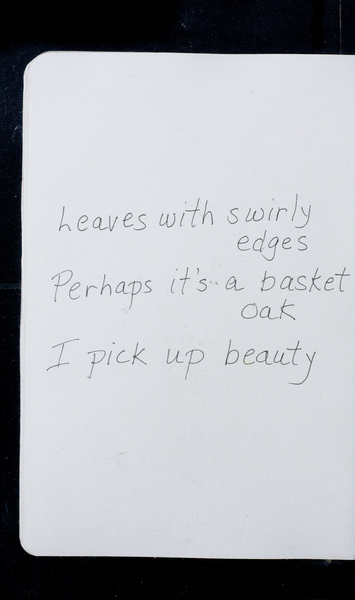 Leaves with swirly
edges
Perhaps it's a basket
oak
I pick up beauty